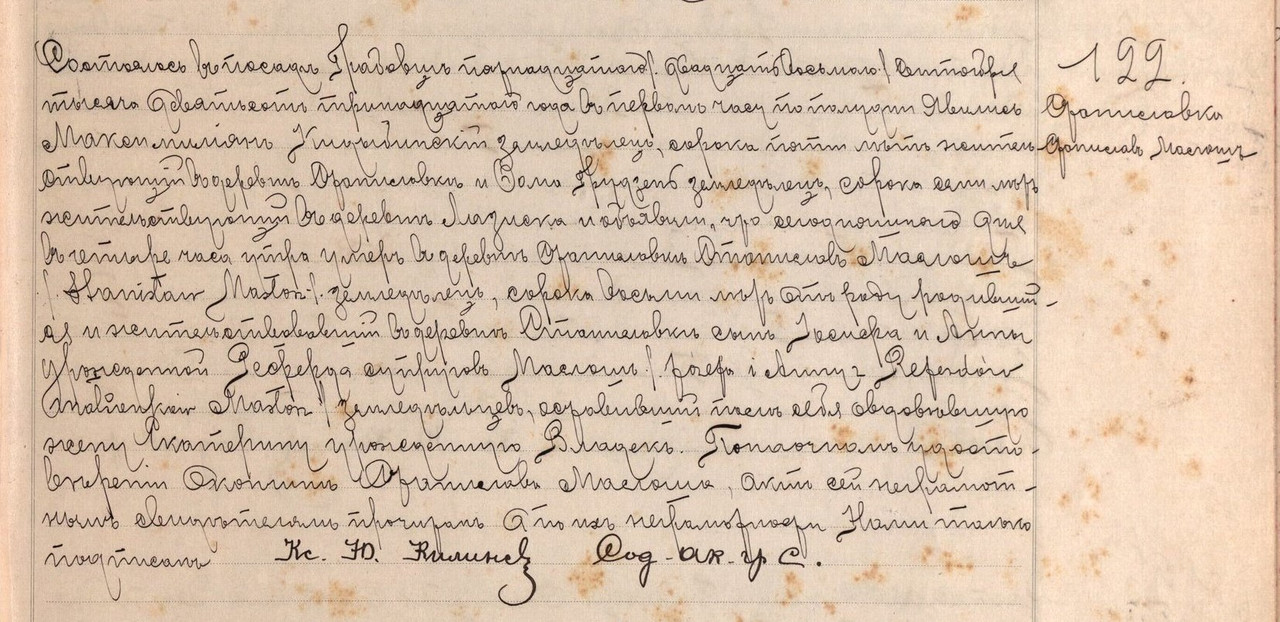 Состоялось въ посадѣ Грабовцѣ пятнадцатаго /: двадцать восьмого :/ Октября
тысяча девятьсотъ тринадцатаго года въ первомъ часу по полудни Явились
Максимиліянъ земледѣлецъ, сорока пяти лѣтъ житель-
ствующій въ деревнѣ и Ѳома Грудзень земледѣлецъ, сорока семи лѣтъ
жительствующій въ деревнѣ Лазиска и объявили, что сегодняшняго дня
въ четыре часа утра умеръ въ деревнѣ Станиславъ Маслошъ
/: Stanisław Masłoń :/ земледѣлецъ, сорока восьми лѣтъ отъ роду родившій-
ся и жительствовавшій въ деревнѣ сынъ Іосифа и Анны
урожденной супруговъ Маслошъ /: Józefa i Anny z
małżonków Masłoń :/ земледѣльцевъ, оставившій послѣ себя овдовѣвшую
жену Екатерину урожденную Владекъ. По наочномъ удосто-
вѣреніи о кончинѣ Станислава Маслоша, актъ сей неграмот-
нымъ свидѣтелямъ прочитанъ а по ихъ неграмотности Нами только
подписанъ Кс. Ю. Сод. ак. гр. с.
122.
Станиславъ Маслошъ